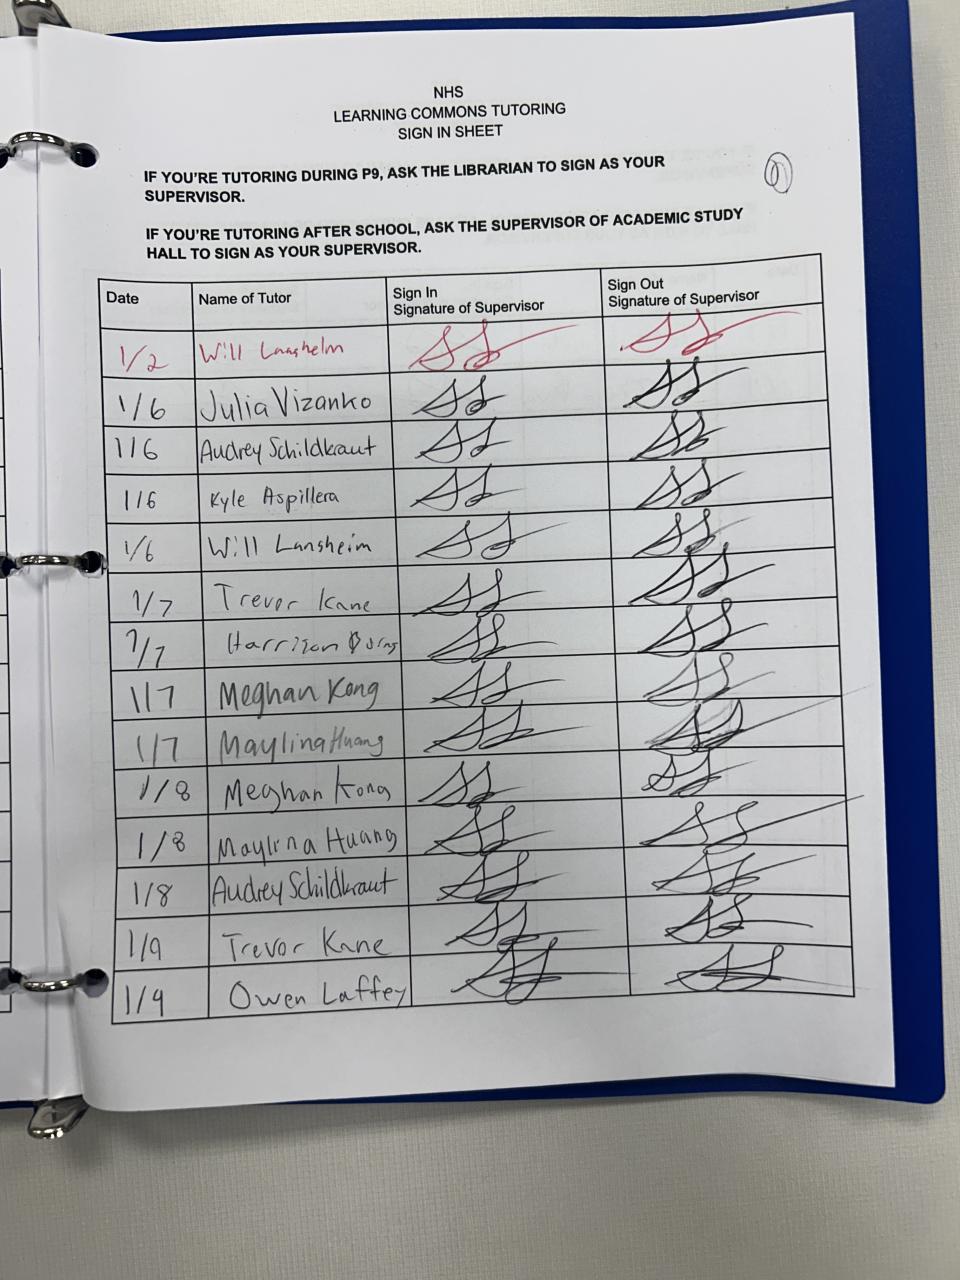 NHS
LEARNING COMMONS TUTORING
SIGN IN SHEET
IF YOU'RE TUTORING DURING P9, ASK THE LIBRARIAN TO SIGN AS YOUR
SUPERVISOR.
IF YOU'RE TUTORING AFTER SCHOOL, ASK THE SUPERVISOR OF ACADEMIC STUDY
HALL TO SIGN AS YOUR SUPERVISOR.
Date Name of Tutor Sign In Signature of Supervisor Sign Out Signature of Supervisor
1/2 Will
1/6 Julia Vizanko
1/6 Audrey Schildkraut
1/6 Kyle Aspillera
1/6 Will Lansheim
1/7 Trevor Kane
1/7 Harrison
1/7 Meghan Kong
1/7 Maylina Huang
1/8 Meghan Kong
1/8 Maylina Huang
1/8 Audrey Schildkraut
1/9 Trevor Kane
1/9 Owen Laffey